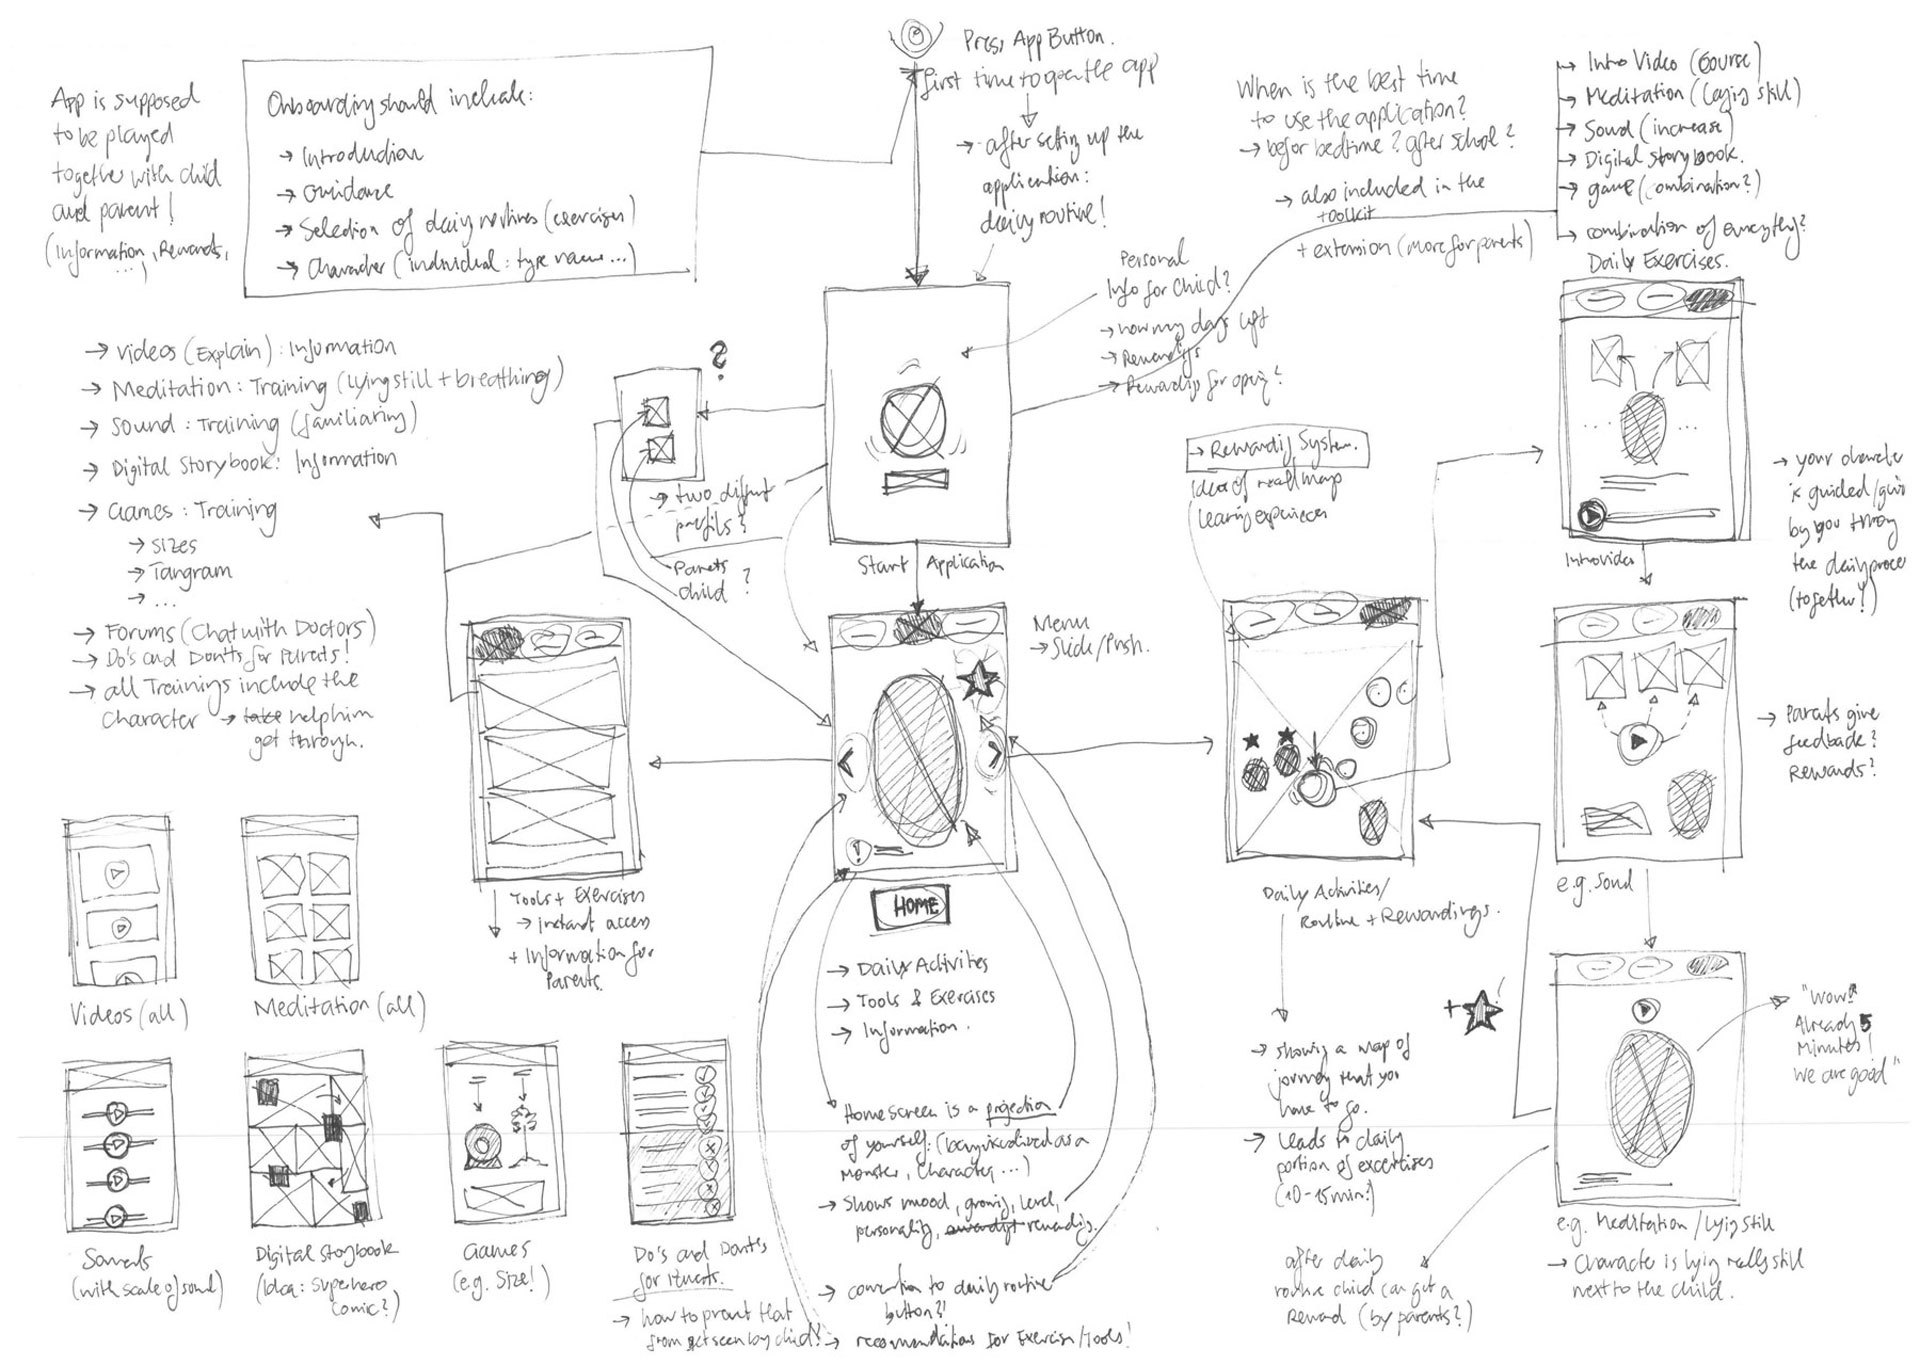 App is supposed
to be played
together with child
and parent!
(Information, Rewards,
...)
Onboarding should include:
→ Introduction
→ Guidance
→ Selection of daily routines (exercises)
→ Character (individual: type name...)
Press App Button.
first time to open the app
→ after setting up the
application:
daily routine!
When is the best time
to use the application?
→ befor bedtime? after school?
→ also included in the
toolkit
+ extension (more for parents)
→ Intro Video (Course)
→ Meditation (laying skill)
→ Sound (increase)
→ Digital Storybook.
→ game (combination?)
→ combination of everything?
Daily Exercises.
Personal
Info for Child?
→ how my days left
→ Rewardigs
→ Rewardigs for opening?
→ Videos (Explain): Information
→ Meditation: Training (lying still + breathing)
→ Sound: Training (familiaring)
→ Digital Storybook: Information
→ Games: Training
→ Sizes
→ Tangram
→ ...
→ Forums (Chat with Doctors)
→ Do's and Don'ts for Parents!
→ all Trainings include the
Character → help him
get through.
?
→ two diffrent
profils?
Parents
child ?
Start Application
→ Rewardig System.
Idea of roadmap
learnig experiences
Introvideo
→ your character
is guided/
by you
the daily
(together?)
Menu
→ Slide/Push.
→ Parents give
feedback?
Rewards?
Tools + Exercises
→ instant access
+ Information for
Parents.
HOME
→ Daily Activities
→ Tools & Exercises
→ Information.
Daily Activities/
Routine + Rewardings.
e.g. Sound
Videos (all)
Meditation (all)
→ showing a map of
journey that you
have to go.
→ leads to daily
portion of excertises
(10-15 min!)
+
"Wow!
Already 5
Minutes!
We are good"
Home Screen is a projection
of yourself. (being as a
Monster, Character, ...)
→ Shows mood, growing, level,
personality, rewardigs.
→ connention to daily routine
button?!
→ recomendations for Exercise/Tools!
Sounds
(with scale of sound)
Digital Storybook
(Idea: Superhero
Comic?)
Games
(e.g. Size!)
Do's and Donts
for Parents.
→ how to prevent that
from get seen by child?
after daily
routine child can get a
Reward (by parents?)
e.g. Meditation / lying still
→ Character is lying really still
next to the child.